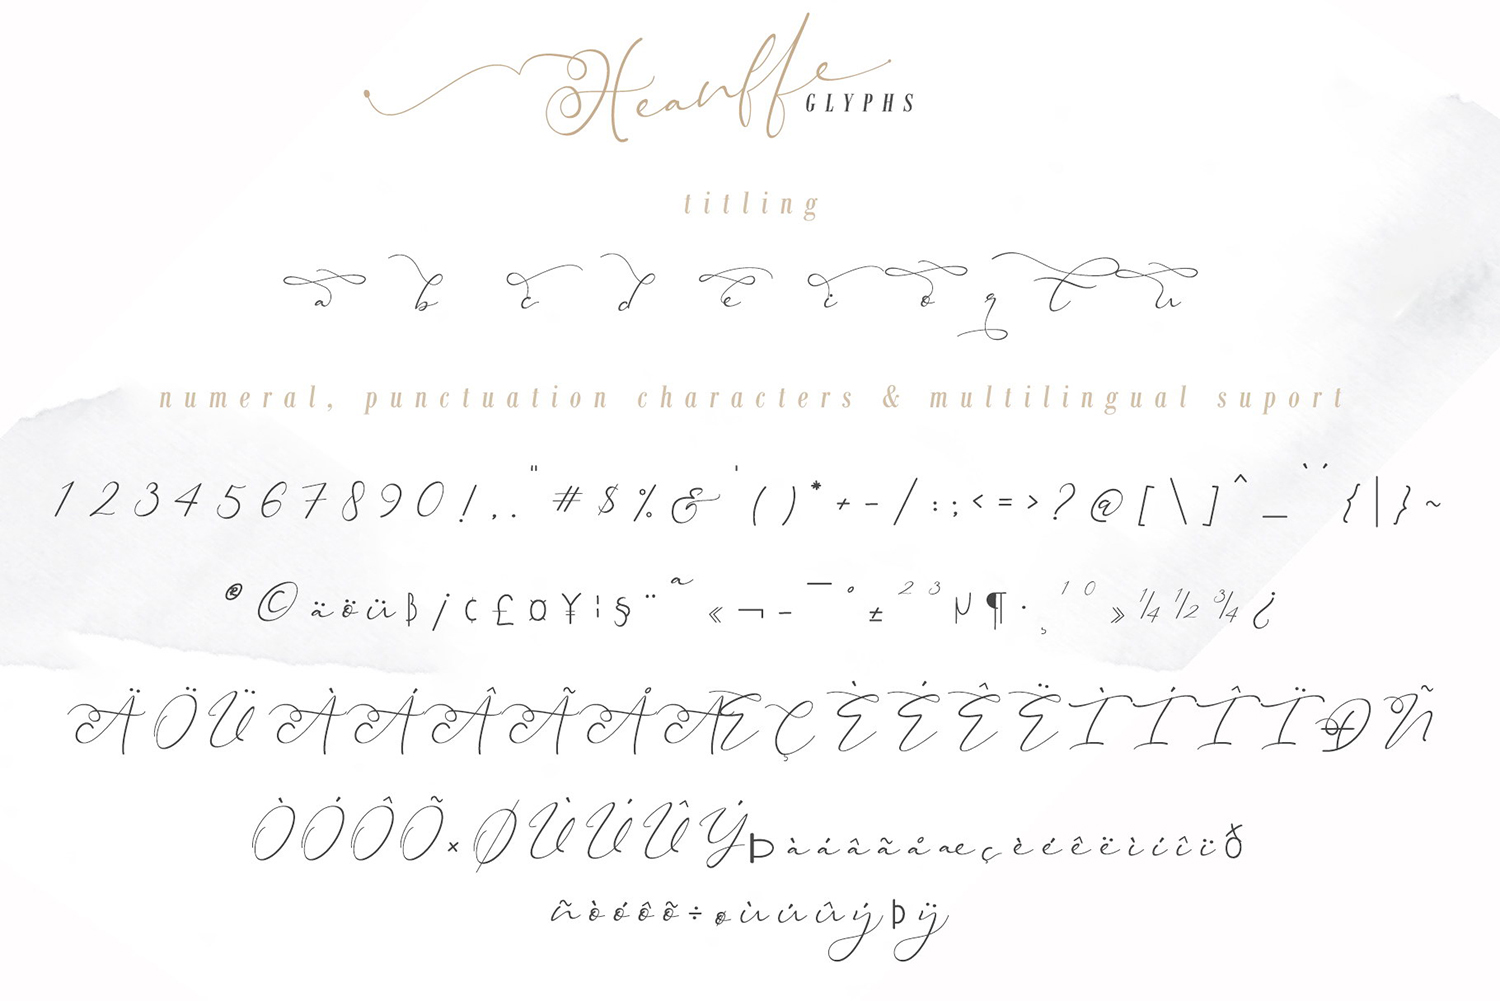 Heanffe GLYPHS
titling
a b c d e i o q t u
numeral, punctuation characters & multilingual suport
1 2 3 4 5 6 7 8 9 0 ! , . " # $ % & ' ( ) * + - / : ; < = > ? @ [ \ ] ^ _ ` ` { | } ~
® © ä ö ü β ¡ ¢ £ ¤ ¥ ¦ § ¨ ª « ¬ - ¯ ° ± ² ³ µ ¶ · ¸ ¹ ⁰ » ¼ ½ ¾ ¿
Ä Ö Ü À Á Â Ã Å Æ Ç È É Ê Ë Ì Í Î Ï Ð Ñ
Ò Ó Ô Õ × Ø Ù Ú Û Ý Þ à á â ã å æ ç è é ê ë ì í î ï ð
ñ ò ó ô õ ÷ ø ù ú û ý þ ÿ